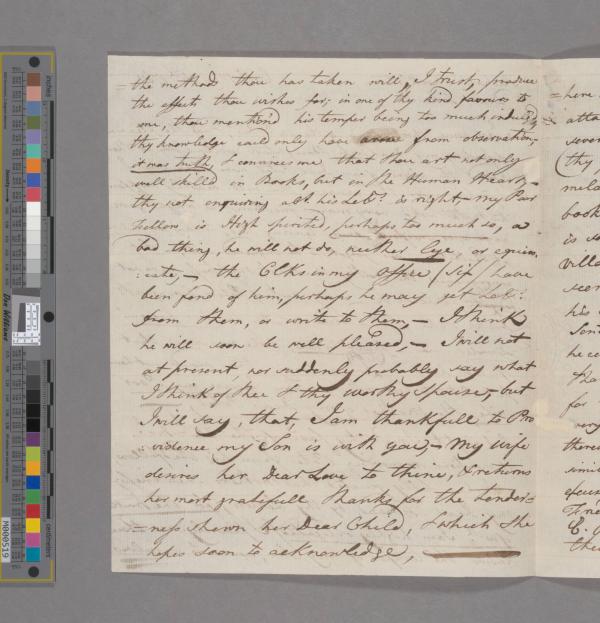 =the method thou has taken will, I trust, produce
the effect thou wishes for; in one of thy kind favours to
me, thou mentiond his temper being too much indulgd,
thy knowledge could only have arose from observation,
it was truth, & convinces me that thou art not only
well skilld in Books, but in the Human Heart,—
thy not enquiring abt his Lets. is right,— my Poor
Fellow is High spirited, perhaps too much so, a
bad thing, he will not do, neither Lye, or equivo,
:cate,— the Clks in my office (six) have
been fond of him, perhaps he may get Lets:
from them, or write to them,— I think
he will soon be well pleased,— I will not
at present, nor suddenly probably say what
I think of thee & thy worthy Spouse,— but
I will say, that, I am thankfull to Pro
:vidence my Son is with you,— My wife
desires her Dear Love to thine, & returns
her most gratefull thanks for the Tender=
=ness shewn her Dear Child, & which she
hopes soon to acknowledge,
=here
atta
sever
(thy
mela
book
is so
villa
seen
his
Son
he co
tha
for
very
there
simi
efcus
Frie
E.
the
inches
centimetres
Don Williams
M000519